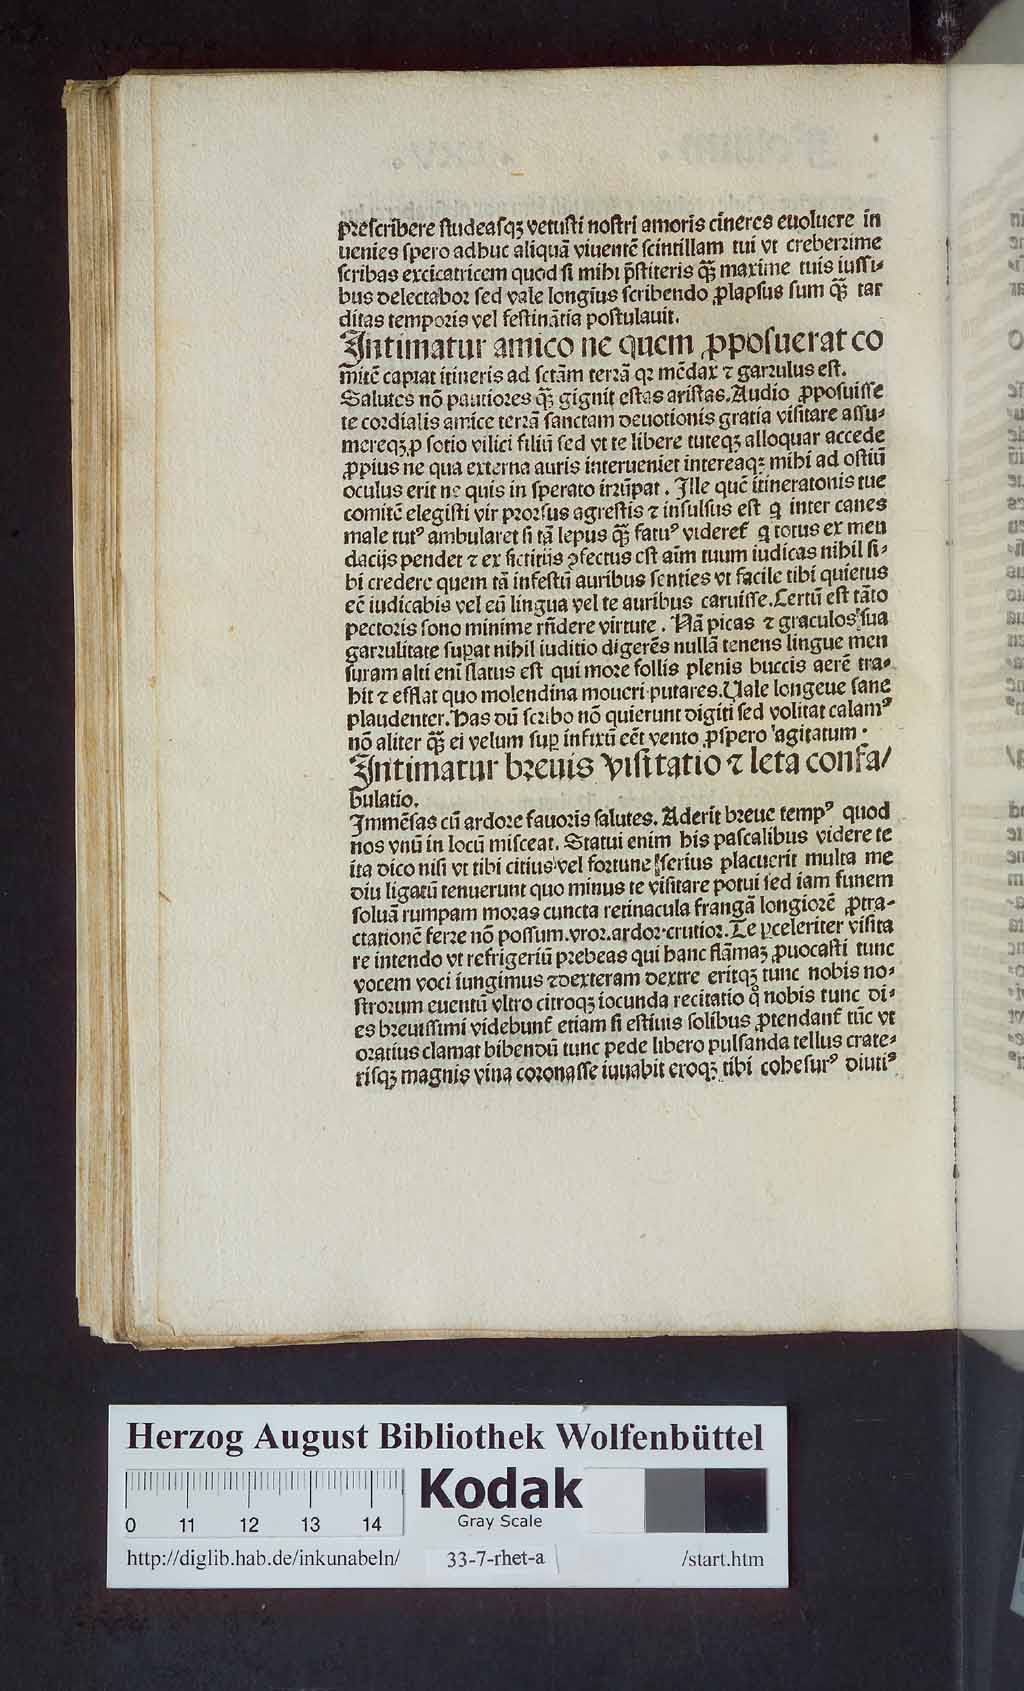 prescribere studeasqꝫ vetusti nostri amoris cineres euoluere in
uenies spero adhuc aliquā viuentē scintillam tui vt creberrime
scribas excicatricem quod si mihi p̄stiteris qꝫ̄ maxime tuis iussi⸗
bus delectabor sed vale longius scribendo ꝓlapsus sum qꝫ̄ tar
ditas temporis vel festinātia postulauit.
Intimatur amico ne quem ꝓposuerat co
mitē capiat itineris ad sctām terrā qꝛ mēdax ⁊ garrulus est.
Salutes nō pautiores qꝫ̄ gignit estas aristas. Audio ꝓposuisse
te cordialis amice terrā sanctam deuotionis gratia visitare assu⸗
mereqꝫ ꝓ sotio vilici filiū sed vt te libere tuteqꝫ alloquar accede
ꝓpius ne qua externa auris interueniet intereaqꝫ mihi ad ostiū
oculus erit ne quis in sperato irrūpat. Ille quē itineratonis tue
comitē elegisti vir prorsus agrestis ⁊ insulsus est q inter canes
male tutꝰ ambularet si tā lepus qꝫ̄ fatuꝰ videret̄ q totus ex men
dacijs pendet ⁊ ex fictitijs ꝯfectus est aīm tuum iudicas nihil si⸗
bi credere quem tā infestū auribus senties vt facile tibi quietus
eē iudicabis vel eū lingua vel te auribus caruisse. Certū est tāto
pectoris sono minime rn̄dere virtute. Nā picas ⁊ graculos sua
garrulitate suꝑat nihil iuditio digerēs nullā tenens lingue men
suram alti enī flatus est qui more follis plenis buccis aerē tra⸗
hit ⁊ efflat quo molendina moueri putares. Uale longeue sane
plaudenter. Has dū scribo nō quierunt digiti sed volitat calamꝰ
nō aliter qꝫ̄ ei velum suꝑ infixū eēt vento ꝓspero agitatum.
Intimatur breuis visitatio ⁊ leta confa/
bulatio.
Immēsas cū ardore fauoris salutes. Aderit breue tempꝰ quod
nos vnū in locū misceat. Statui enim his pascalibus videre te
ita dico nisi vt tibi citius vel fortune serius placuerit multa me
diu ligatū tenuerunt quo minus te visitare potui sed iam funem
soluā rumpam moras cuncta retinacula frangā longiorē ꝓtra⸗
ctationē ferre nō possum. vror. ardor. crutior. Te ꝑceleriter visita
re intendo vt refrigeriū prebeas qui hanc flāmaꝫ ꝓuocasti tunc
vocem voci iungimus ⁊ dexteram dextre eritqꝫ tunc nobis no⸗
strorum euentū vltro citroqꝫ iocunda recitatio q̊ nobis tunc di⸗
es breuissimi videbunt̄ etiam si estiuis solibus ꝓtendant̄ tūc vt
oratius clamat bibendū tunc pede libero pulsanda tellus crate⸗
risqꝫ magnis vina coronasse iuuabit eroqꝫ tibi cohesurꝰ diutiꝰ
Herzog August Bibliothek Wolfenbüttel
Kodak
Gray Scale
0 11 12 13 14
http://diglib.hab.de/inkunabeln/ 33-7-rhet-a /start.htm